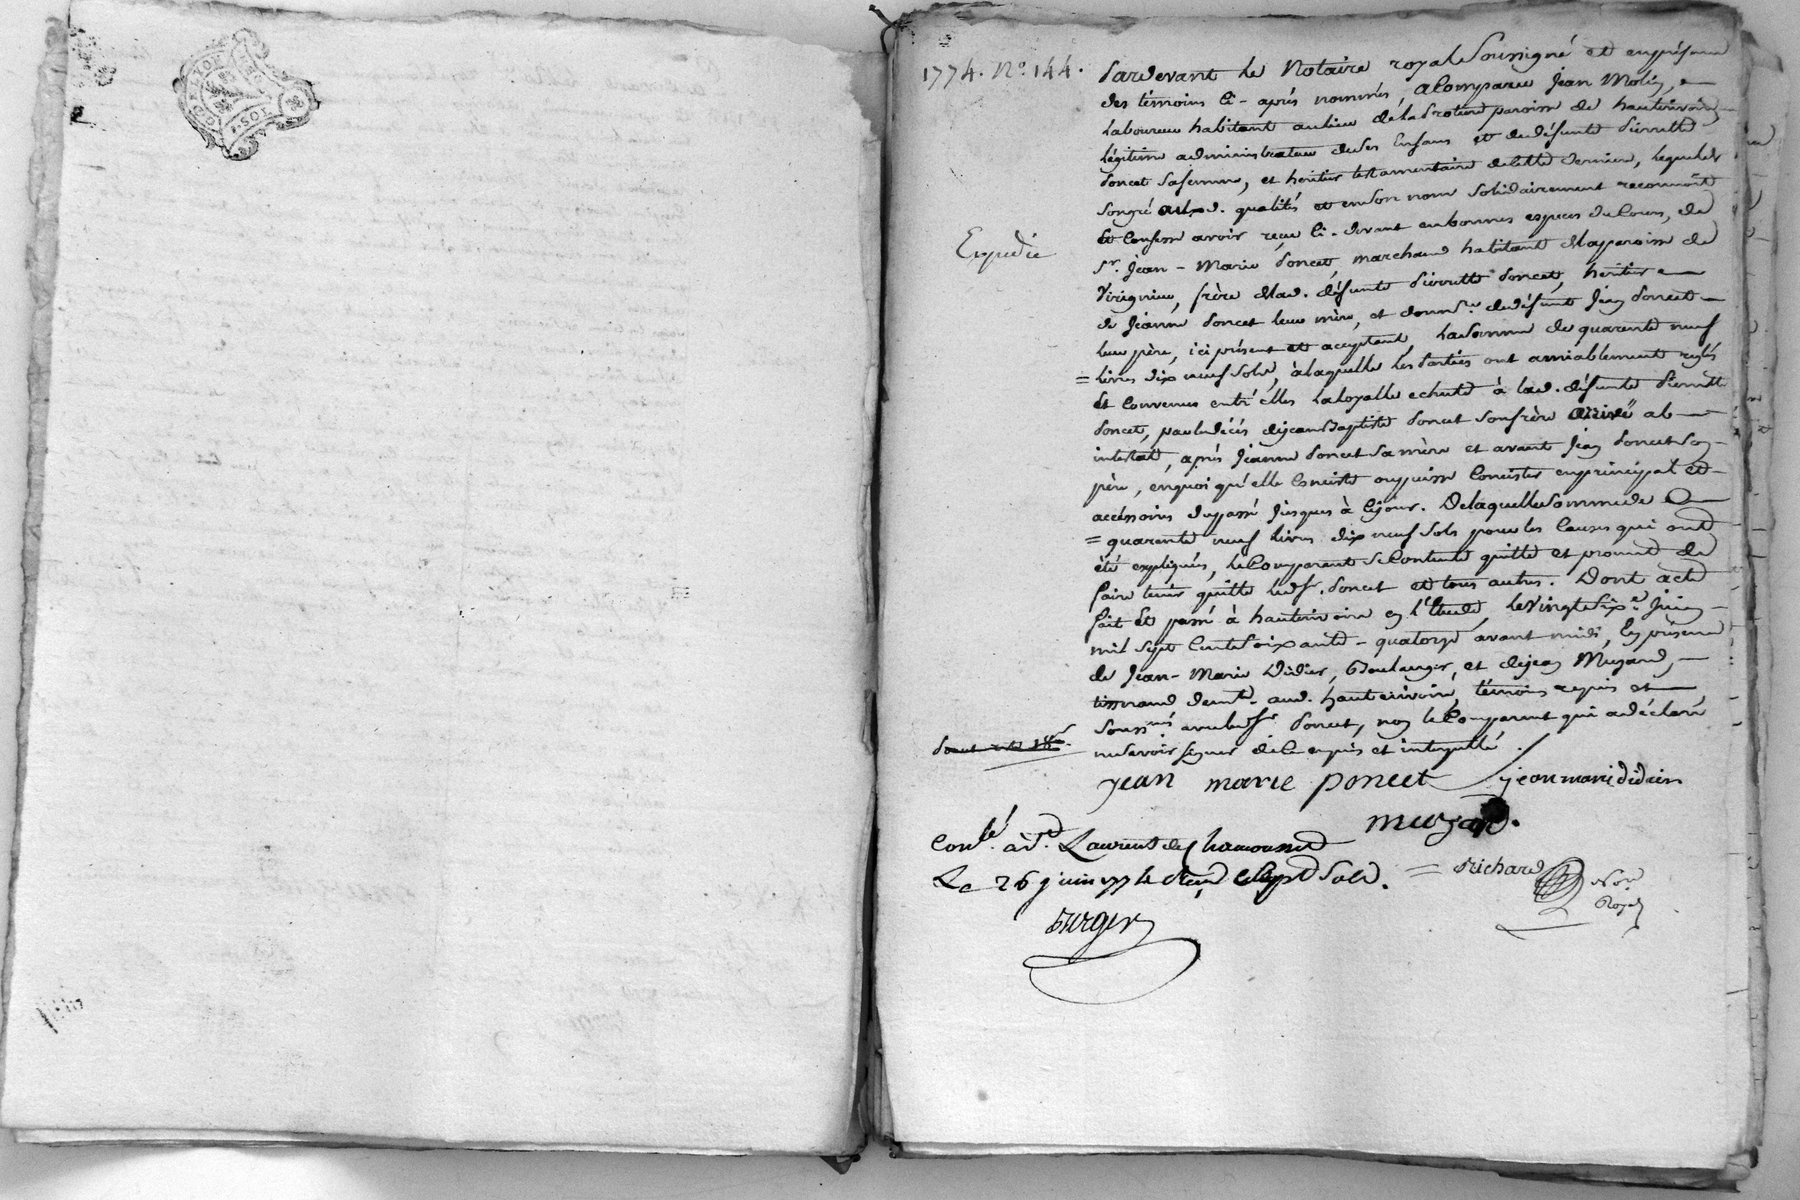 1774. N.º 144.
Pardevant le Notaire royal Soussigné et en présence
des témoins ci-après nommés, a comparu Jean Molin,
Laboureur habitant au lieu de la paroisse de hauterivoire,
légitime administrateur de ses Enfans et de défunte Pierrette
Poncet sa femme, et heritier testamentaire de cette derniere, lequel de
son gré auxd. qualités et en son nom solidairement reconnoît
et confesse avoir reçu ci-devant en bonnes especes du Cours, de
Expedié
Sr. Jean-Marie Poncet, marchand habitant de la paroisse de
Virignieu, frère de lad. défunte Pierrette Poncet, heritier
de Jeanne Poncet leur mère, et donnre. de défunt Jean Poncet
leur père, ici présent et acceptant, la Somme de quarente neuf
livres dix neuf Sols, à laquelle les Parties ont amiablement reglés
et convenus entr'elles la loyalle echute à lad. défunte Pierrette
Poncet, par le décès de Jean Baptiste Poncet son frère arrivé ab
intestat, après Jeanne Poncet sa mère et avant Jean Poncet son
père, en quoi qu'elle Consiste ou puisse Consister en principal et
accéssoires du passé jusques à ce jour. De laquelle Somme de
quarente neuf livres dix neuf sols pour les Causes qui ont
été expliquées, le Comparant se Contente quitte et promet de
faire tenir quitte led. Sr. Poncet et tous autres. Dont acte
fait et passé à hauterivoire en l'Etude, le vingt Sixe. Juin
mil Sept Cent Soixante-quatorze avant midi, En présence
de Jean-Marie Didier, Boulanger, et de Jean Muzard,
tisserand demt. aud. hauterivoire, témoins requis et
Soussnés avec led. Sr. Poncet, non le Comparant qui a déclaré
ne savoir signer de ce enquis et interpellé.
jean marie poncet jean marie didier
muzard.
Conlé. à St. Laurent de Chamousset
Le 26 juin 1774 Reçu Sept Sols.
Richard
Nore.
Royal
Berger